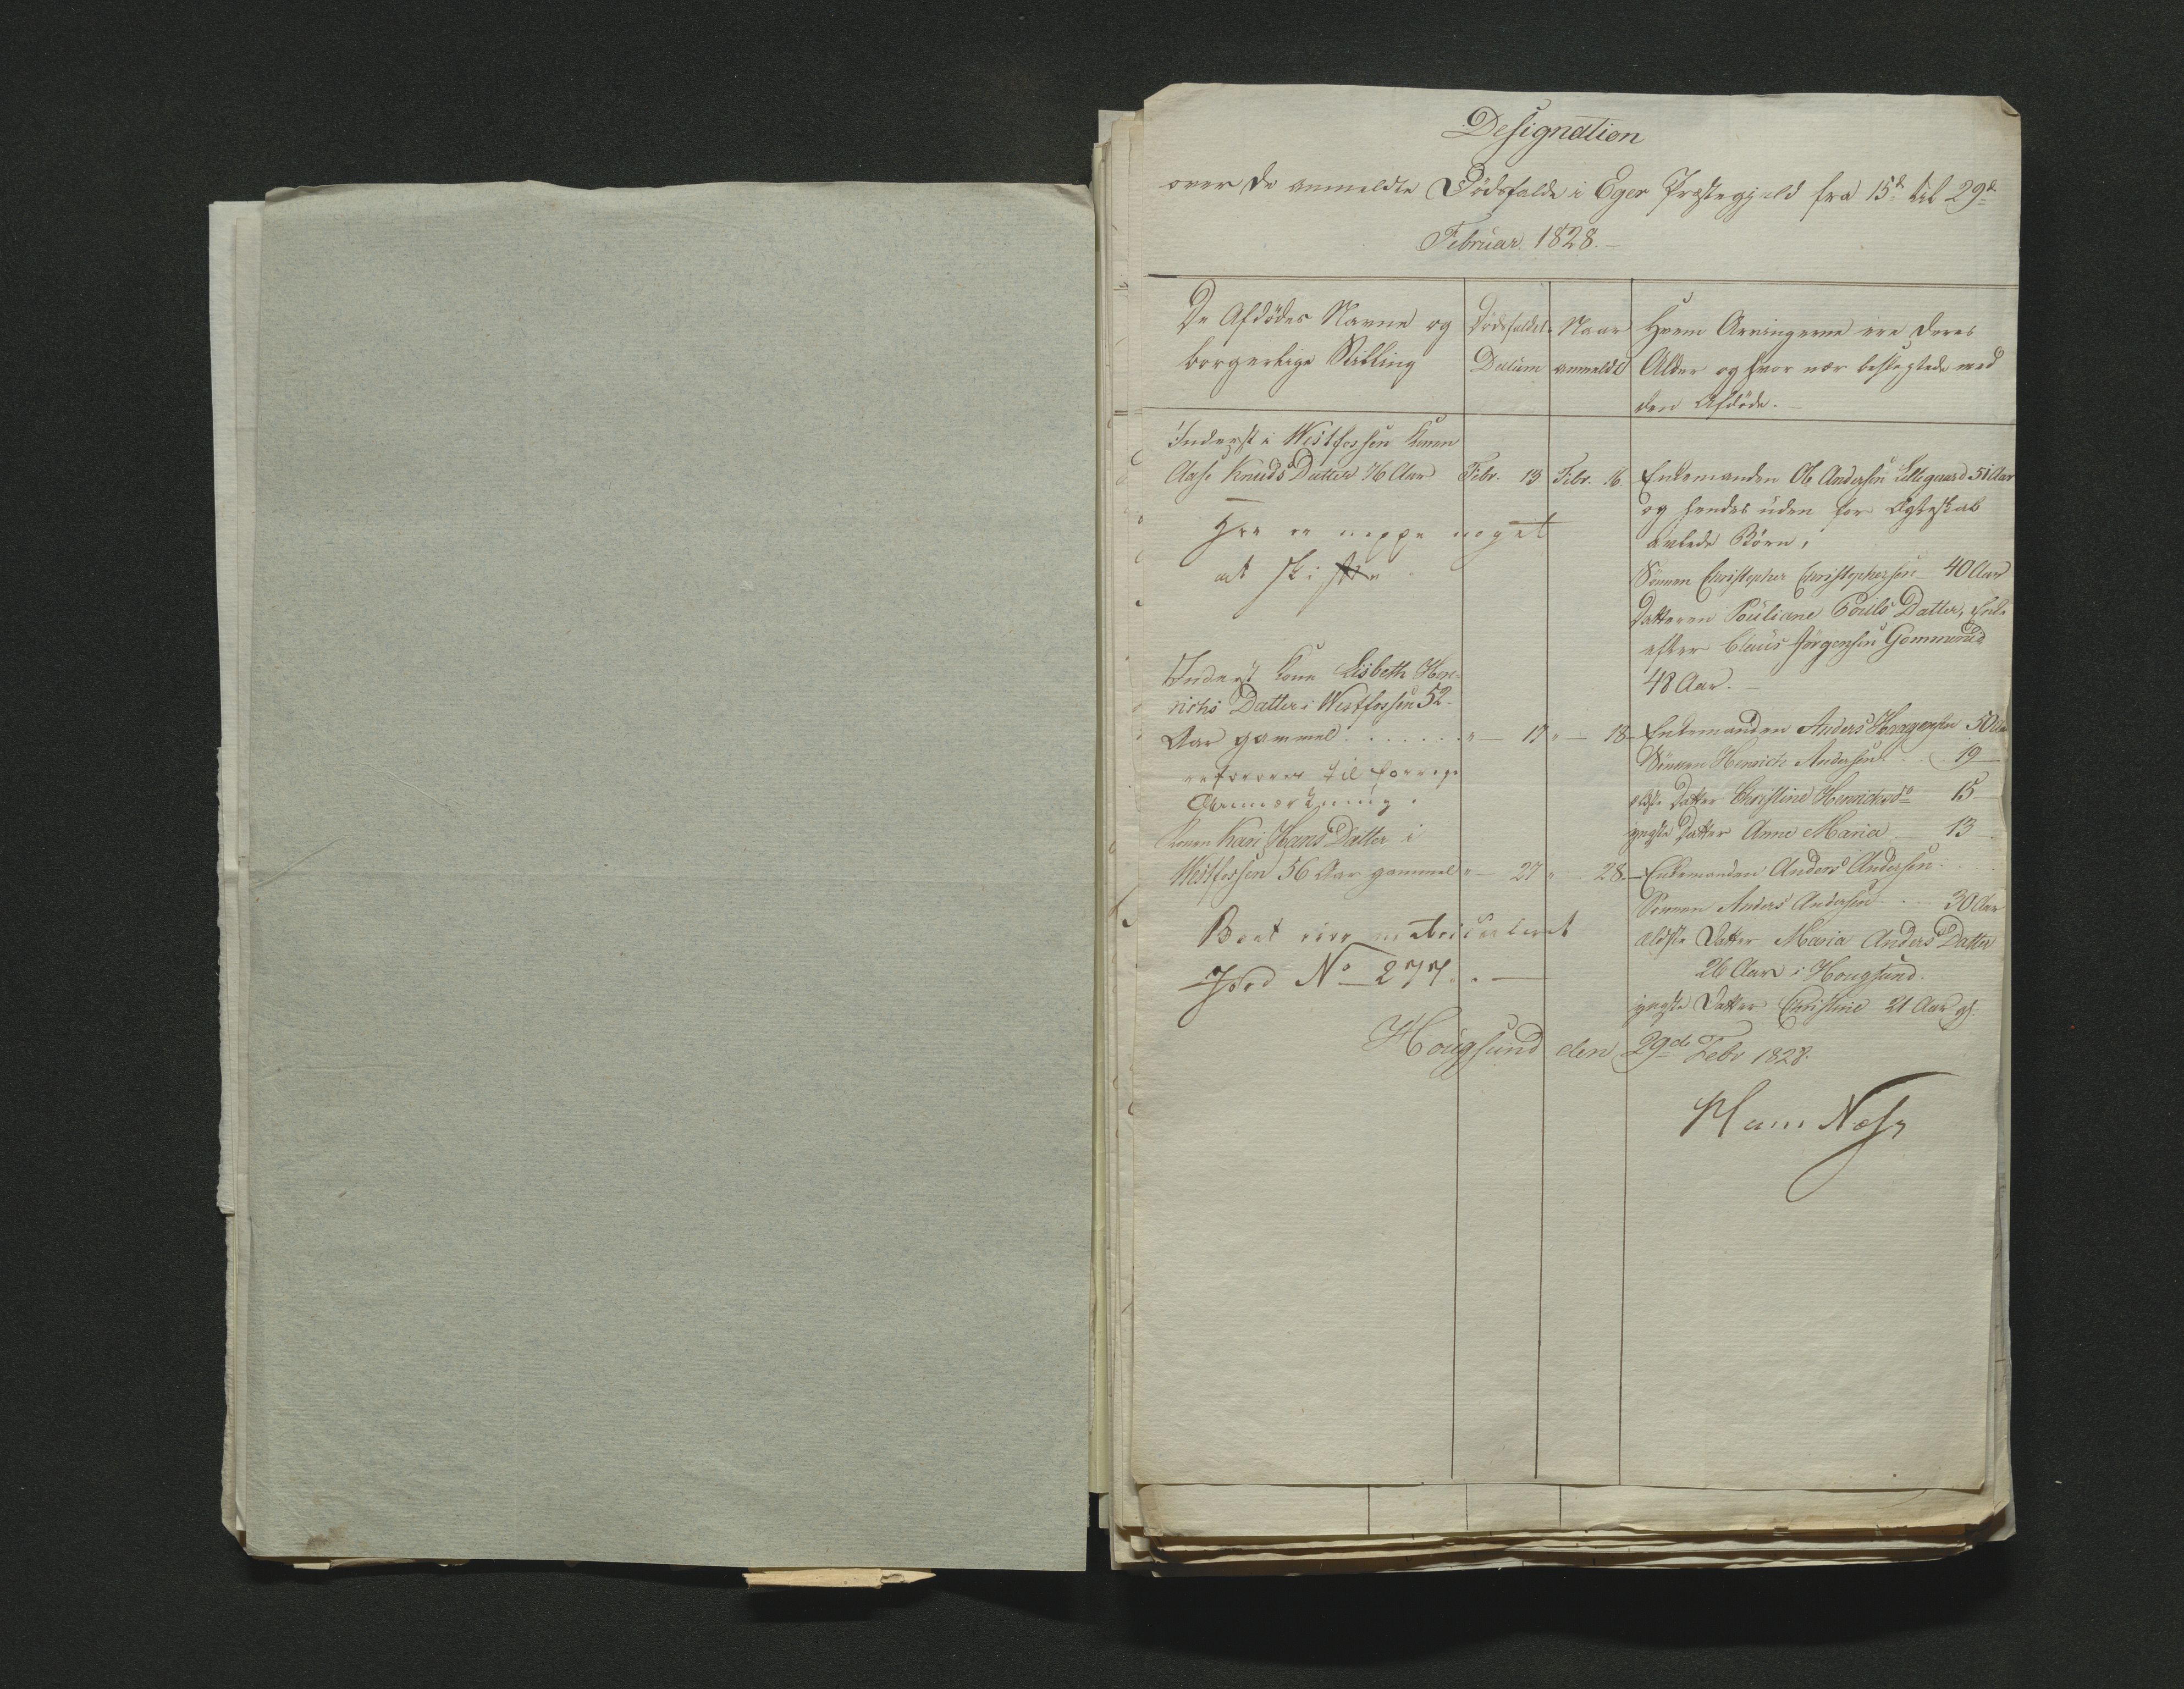 Designation
over de anmeldte Dödsfalde i Eger Præstegjeld fra 15d til 29d
Februar 1828.
De Afdödes Navne og
borgerlige Stilling
Dödsfaldets
Datum
Naar
anmeldt
Hvem Arvingerne ere deres
Alder og hvor nær beslegtede med
den Afdöde.
Inderst i Westfossen Konen
Aase Knuds Datter 76 Aar Febr. 13 Febr. 16.
Her er neppe noget
at skifte
Enkemanden Ole Andersen Lillegaard 51 Aar
og hendes uden for Ægteskab
avlede Börn,
Sönnen Christopher Christophersen 40 Aar
Datteren Pouliane Pouls Datter, Enke
efter Claus Jörgensen
48 Aar.
Inderst Kone Lisbeth Hen-
richs Datter i Westfossen 52
Aar gammel . . . . . . . " 17 " 18
refereres til forrige
Anmærkning.
Enkemanden Anders 50 Aar
Sönnen Henrich Andersen . . 19
eldste Datter Christine 15
yngste Datter Anne Maria 13
Konen Kari Hans Datter i
Westfossen 56 Aar gammel " 27 " 28.
Boet eier matriculeret
Jord No 277.
Enkemanden Anders Andersen
Sönnen Anders Andersen . . 30 Aar
ældste Datter Maria Anders Datter
26 Aar i Hougsund.
yngste Datter Christine 21 Aar gl.
Hougsund den 29de Febr 1828.